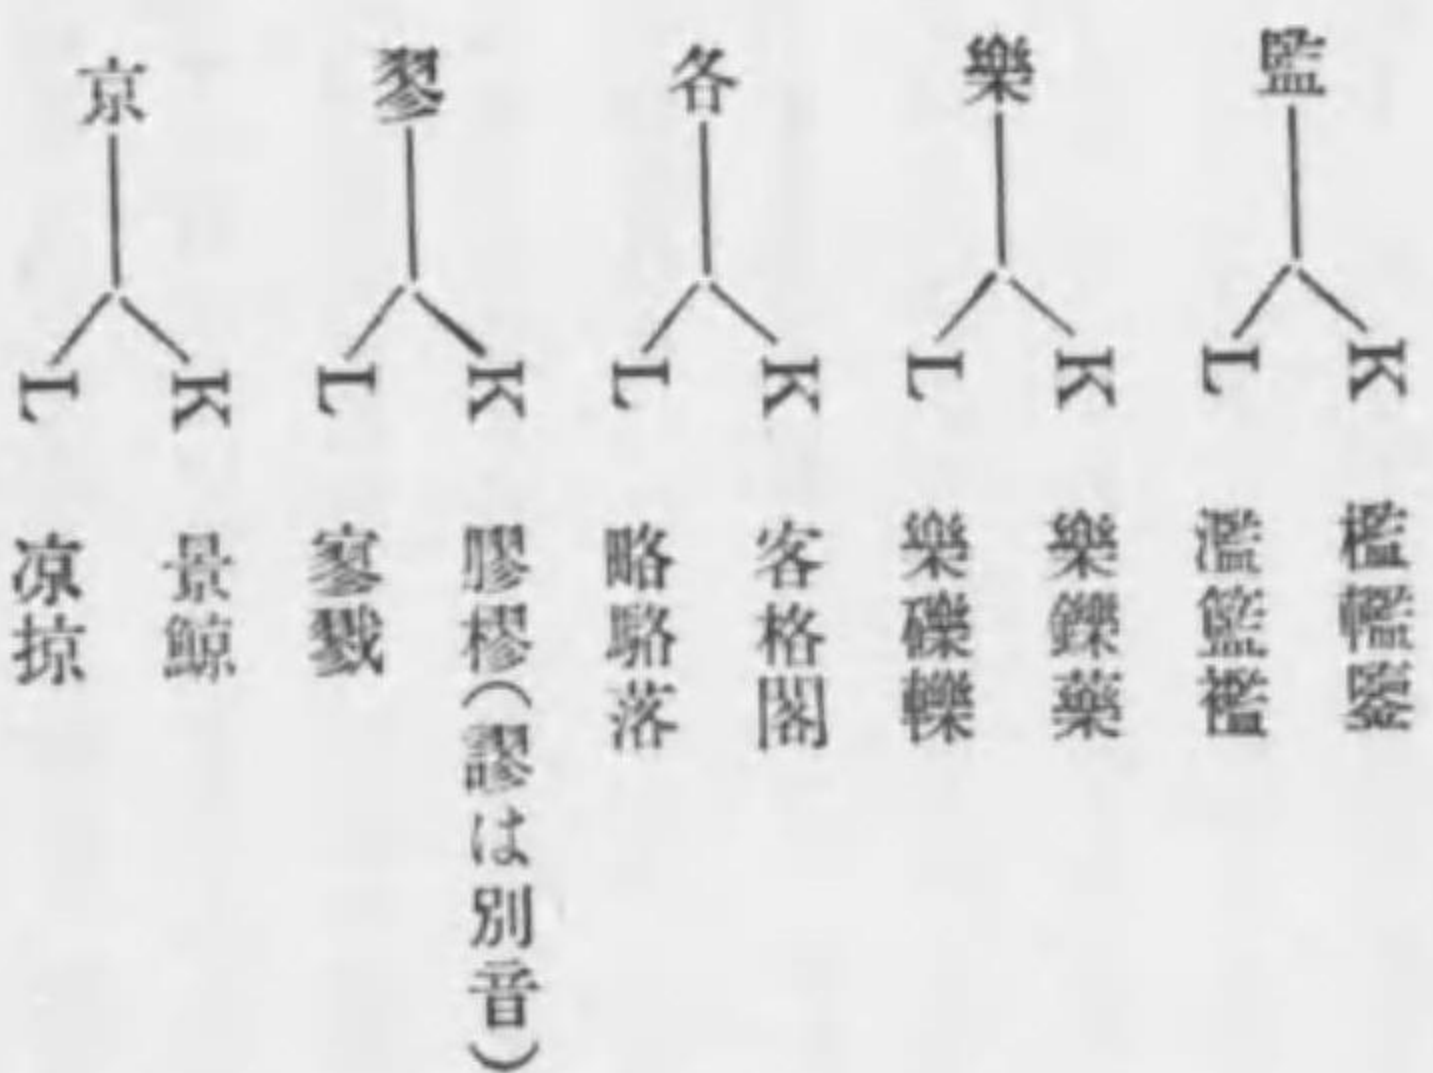 監
K 檻轞鑒
L 濫籃襤
樂
K 樂鑠藥
L 樂礫轢
各
K 客格閣
L 略駱落
翏
K 膠樛(謬は別音)
L 寥戮
京
K 景鯨
L 凉掠